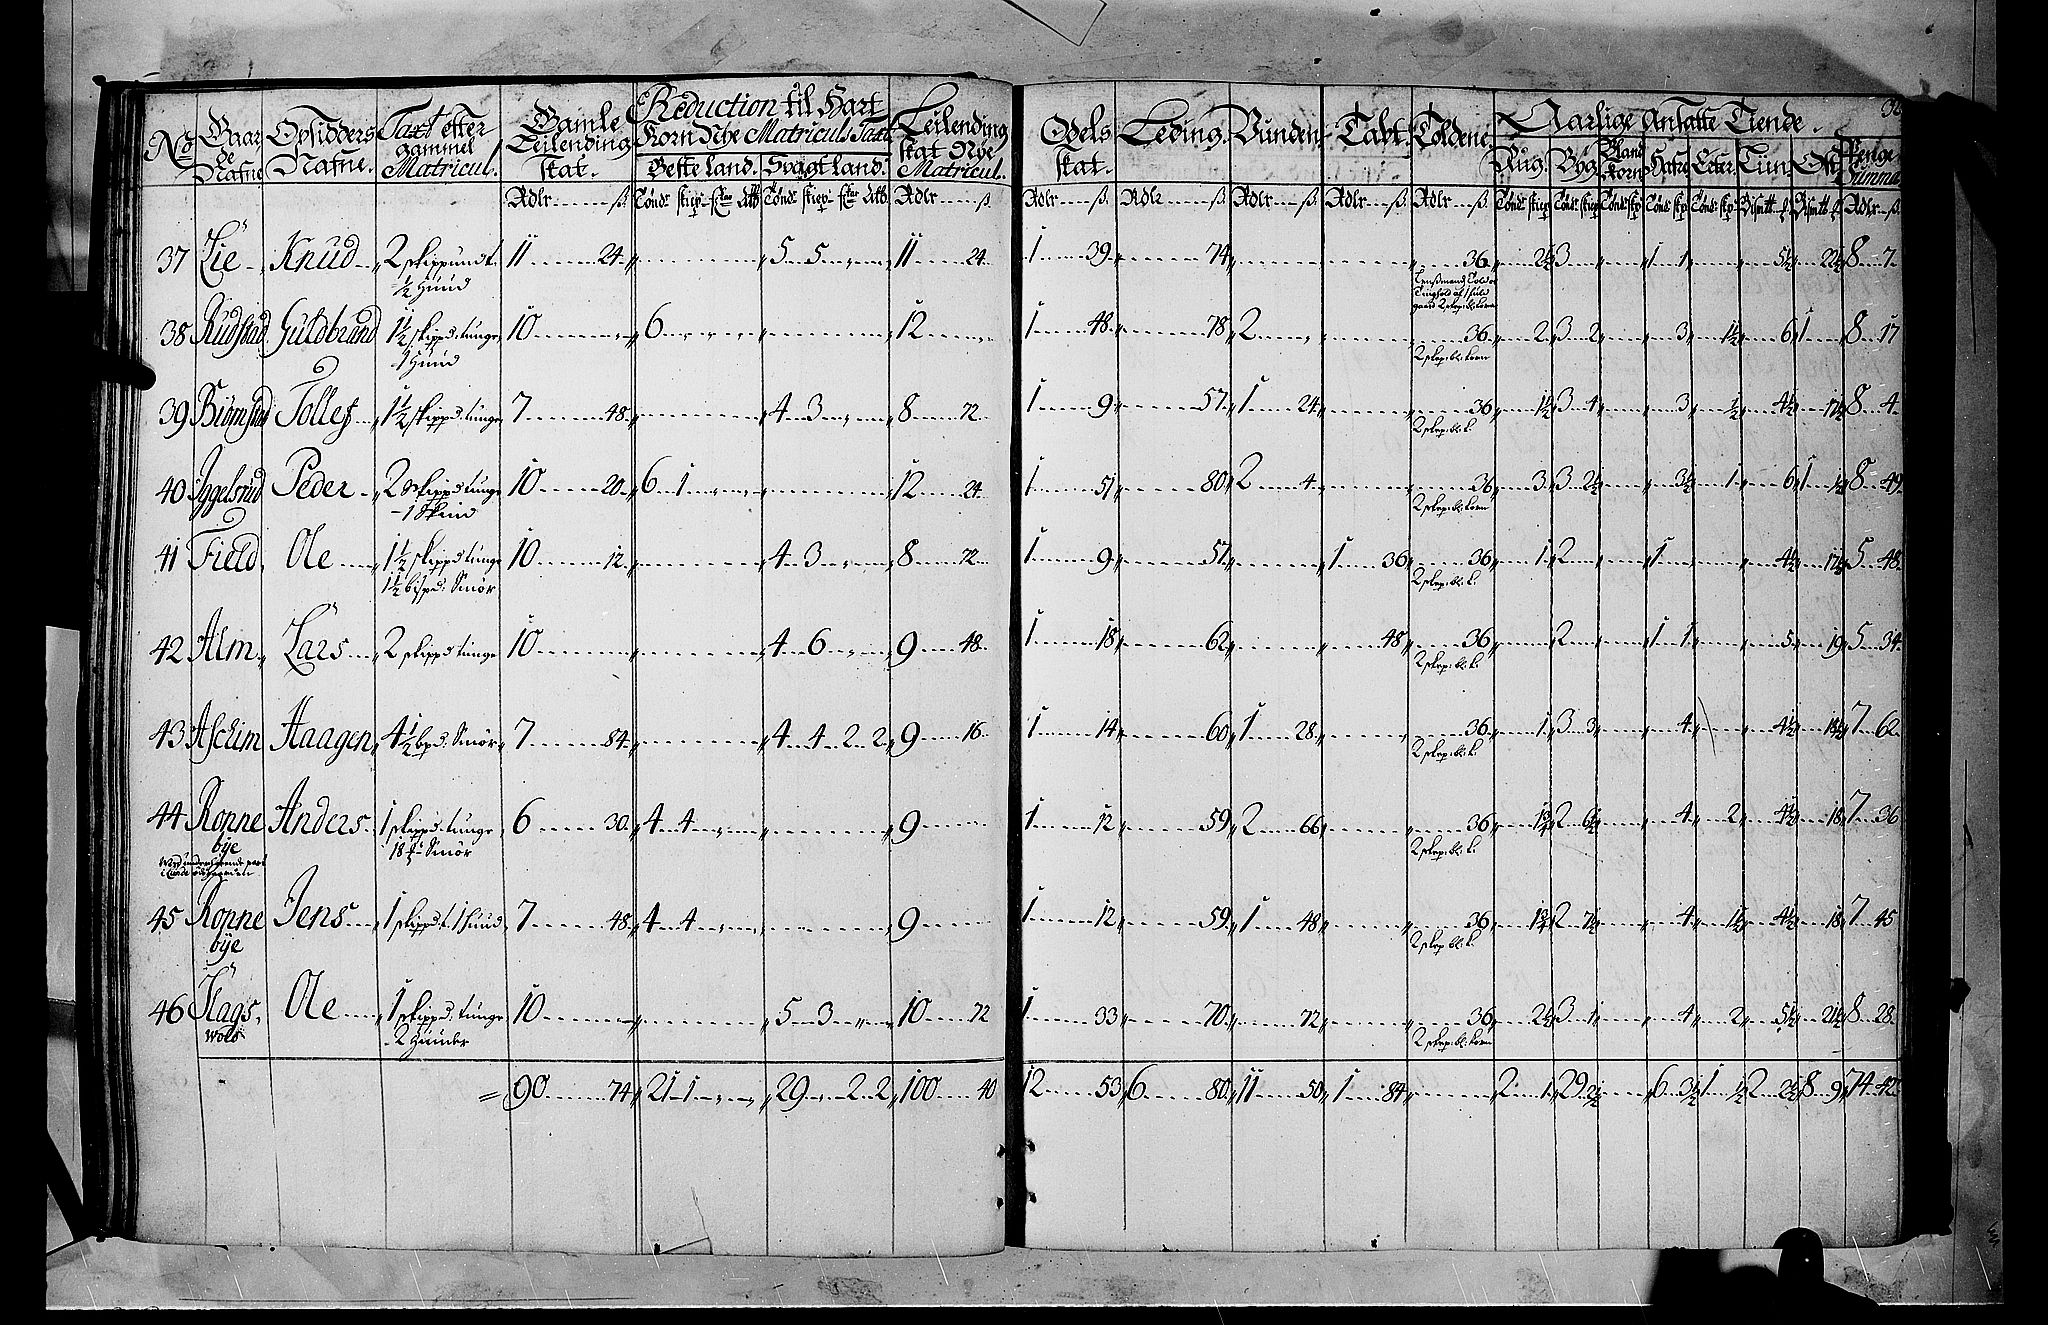 No Gaarde Nafne Opsidders Nafne. Taxt efter gammel Matricul. Gamle Leilending Skat. Reduction til Hart Korn Nye Matriculs Taxt Leilending Skat Nye Matricul. Odels Skat. Leding. Vunden. Tabt. Toldene. Aarlige Ansatte Tiende.
Beste land. Svagt land. Rug. Byg. Bland Korn Hafre Erter. Liin. Ost. Penge Summa
Rdlr ß Tønd Skiep Tønd Skiep Rdlr ß Rdlr ß Rdlr ß Rdlr ß Rdlr ß Rdlr ß Rdlr ß
37 Lie Knud 2 skippund t. 11 24 5 5 11 24 1 39 74 36 2½ 3 1 1 5½ 22½ 8 7
½ Huud
38 Rudstad Guldbrand 1½ skippd: tunge 10 6 12 1 48 78 2 36 2 3 2 3 1½ 6 1 8 17
1 Huud 2 skep: bl: korn
39 Biørnstad Tollef 1½ skippd: tunge 7 48 4 3 8 72 1 9 57 1 24 36 1½ 3 4 3 ½ 4½ 17½ 8 4
2 skep: bl: k:
40 Iggelsrud Peder 2 skippd tunge 10 20 6 1 12 24 1 51 80 2 4 36 3 3 2½ 3½ 1 6 1 1½ 8 49
1 Skind 2 skep: bl: korn
41 Field Ole 1½ skippd tunge 10 12 4 3 8 72 1 9 57 1 36 36 1 2 1 4½ 17½ 5 48
1½ bispd: Smør 2 skep: bl: k:
42 Alm Lars 2 skippd tunge 10 4 6 9 48 1 18 62 48 36 2 1 1 5 19 5 34
2 skep: bl: k:
43 Aschim Haagen 4½ bpd: Smør 7 84 4 4 2 2 9 16 1 14 60 1 28 36 1 3 3 4 4½ 18½ 7 62
2 skep: bl: k:
44 Ronne Anders 1 skippd: tunge 6 30 4 4 9 1 12 59 2 66 36 1¾ 2 6½ 4 2 4½ 18 7 36
bye 18 ℔ Smør 2 skep: bl: k:
45 Ronne Jens 1 skippd t. 1 huud 7 48 4 4 9 1 12 59 1 48 36 1¾ 2 7½ 4 1½ 4½ 18 7 45
bye 2 skep: bl: k:
46 Hags Ole 1 skippd tunge 10 5 3 10 72 1 33 70 72 36 2½ 3 1 4 2 5½ 21½ 8 28
Wold 2 Huuder 2 skep: bl: korn
= 90 74 21 1 29 2 2 100 40 12 53 6 80 11 50 1 84 2 1 29 2½ 6 3½ 1 ½ 2 2½ 8 9 74 42